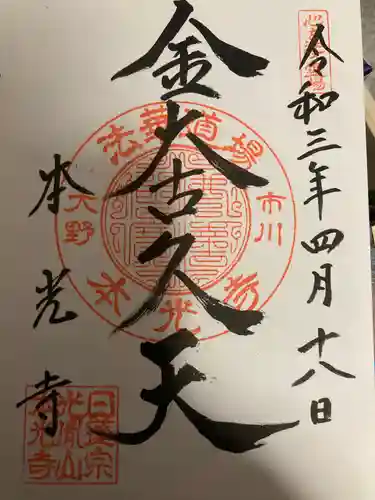 令和三年四月十八日
金大古久天
本光寺
法華道場
市川
大野
本光寺
日蓮宗
光胤山
本光寺